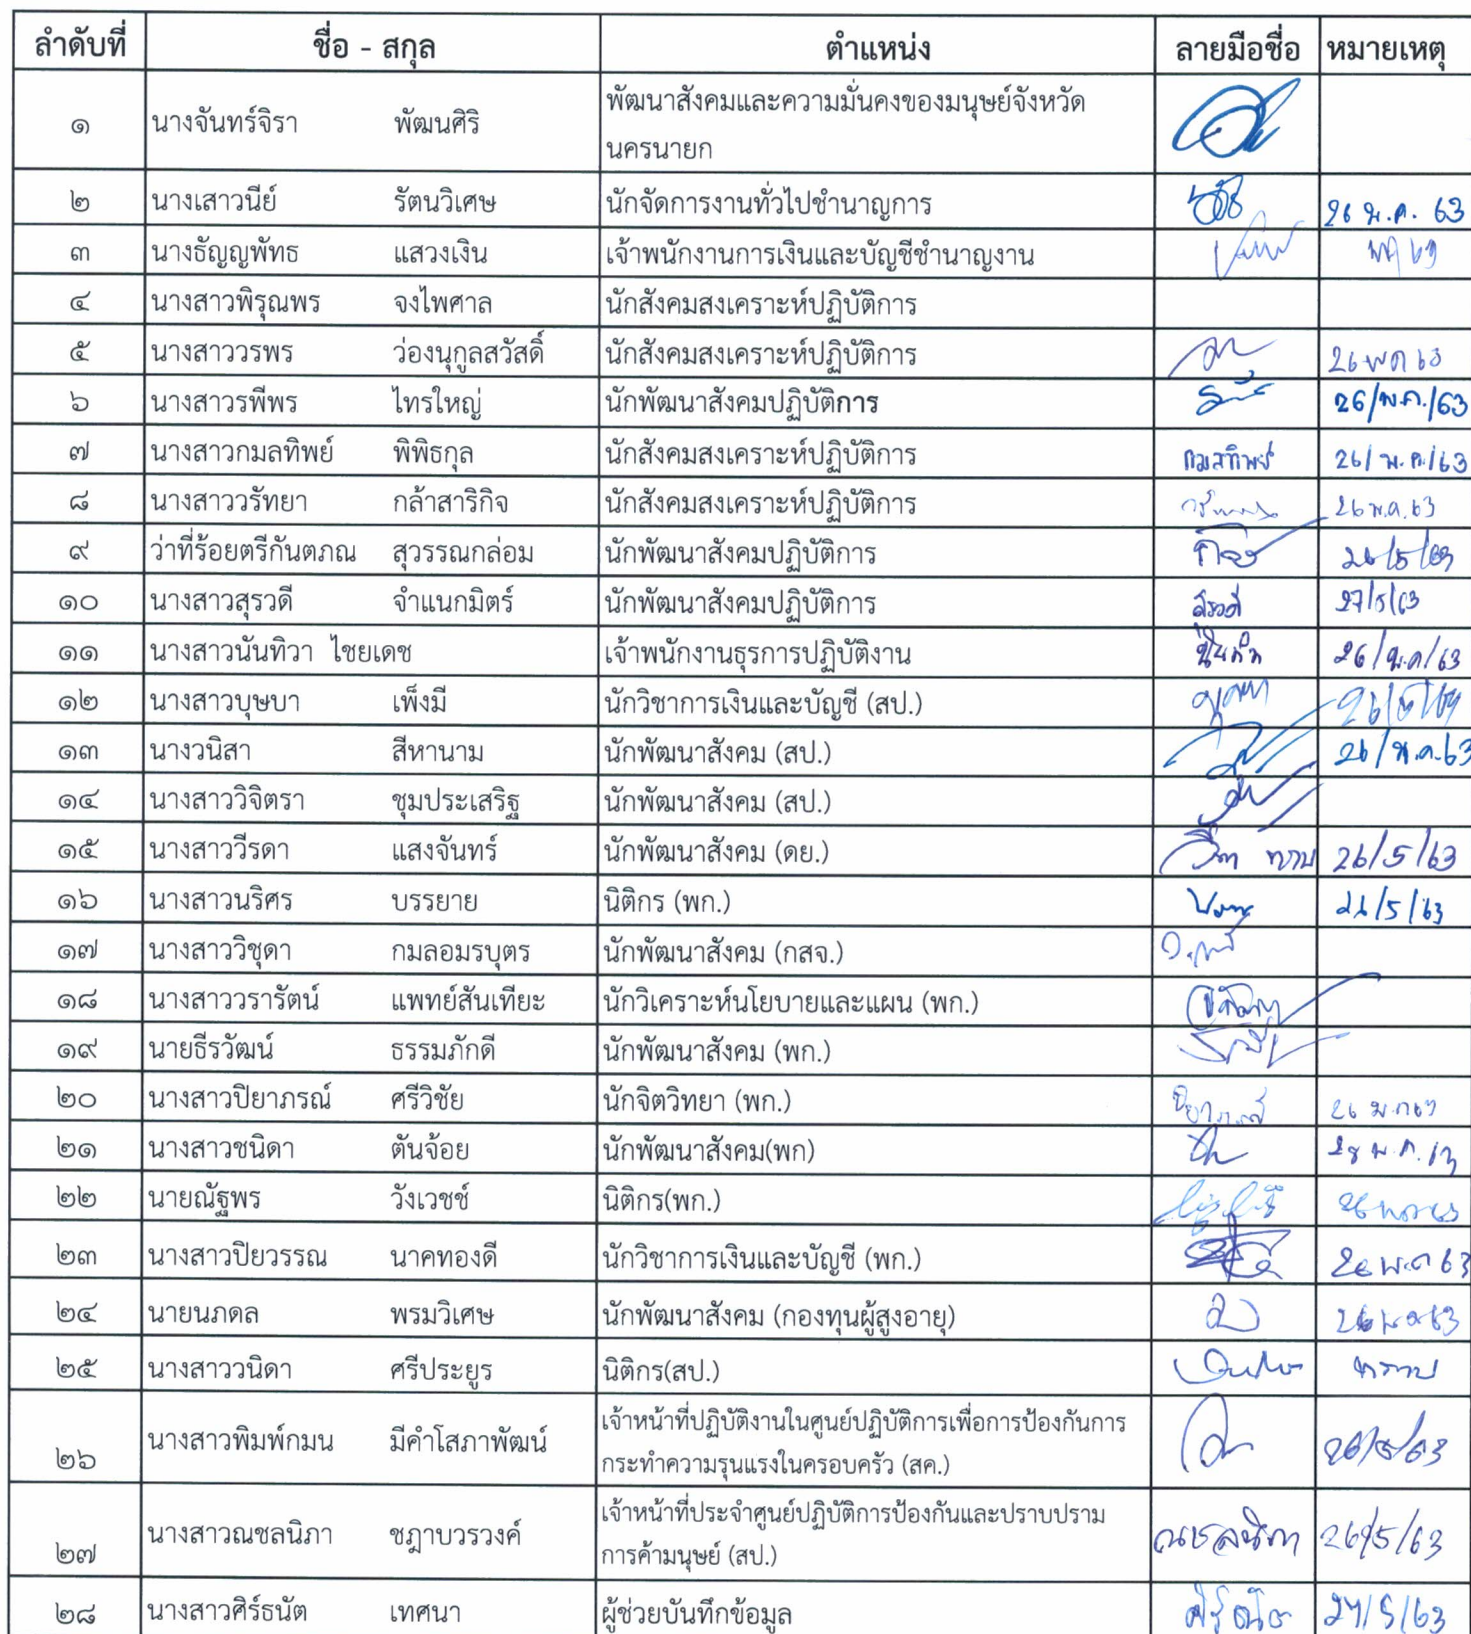 ลำดับที่ ชื่อ - สกุล ตำแหน่ง ลายมือชื่อ หมายเหตุ
๑ นางจันทร์จิรา พัฒนศิริ พัฒนาสังคมและความมั่นคงของมนุษย์จังหวัด
นครนายก
๒ นางเสาวนีย์ รัตนวิเศษ นักจัดการงานทั่วไปชำนาญการ 26 พ.ค. 63
๓ นางธัญญพัทธ แสวงเงิน เจ้าพนักงานการเงินและบัญชีชำนาญงาน
๔ นางสาวพิรุณพร จงไพศาล นักสังคมสงเคราะห์ปฏิบัติการ
๕ นางสาววรพร ว่องนุกูลสวัสดิ์ นักสังคมสงเคราะห์ปฏิบัติการ 26 พค 63
๖ นางสาวรพีพร ไทรใหญ่ นักพัฒนาสังคมปฏิบัติการ 26/พ.ค./63
๗ นางสาวกมลทิพย์ พิพิธกุล นักสังคมสงเคราะห์ปฏิบัติการ กมลทิพย์ 26/ พ.ค./63
๘ นางสาววรัทยา กล้าสาริกิจ นักสังคมสงเคราะห์ปฏิบัติการ 26 พ.ค. 63
๙ ว่าที่ร้อยตรีกันตภณ สุวรรณกล่อม นักพัฒนาสังคมปฏิบัติการ 26/5/63
๑๐ นางสาวสุรวดี จำแนกมิตร์ นักพัฒนาสังคมปฏิบัติการ สุรวดี 27/5/63
๑๑ นางสาวนันทิวา ไชยเดช เจ้าพนักงานธุรการปฏิบัติงาน 26/พ.ค/63
๑๒ นางสาวบุษบา เพ็งมี นักวิชาการเงินและบัญชี (สป.) 26/5/63
๑๓ นางวนิสา สีหานาม นักพัฒนาสังคม (สป.) 26/พ.ค.63
๑๔ นางสาววิจิตรา ชุมประเสริฐ นักพัฒนาสังคม (สป.)
๑๕ นางสาววีรดา แสงจันทร์ นักพัฒนาสังคม (ดย.) ทราบ 26/5/63
๑๖ นางสาวนริศร บรรยาย นิติกร (พก.) 26/5/63
๑๗ นางสาววิชุดา กมลอมรบุตร นักพัฒนาสังคม (กสจ.)
๑๘ นางสาววรารัตน์ แพทย์สันเทียะ นักวิเคราะห์นโยบายและแผน (พก.)
๑๙ นายธีรวัฒน์ ธรรมภักดี นักพัฒนาสังคม (พก.)
๒๐ นางสาวปิยาภรณ์ ศรีวิชัย นักจิตวิทยา (พก.) ปิยาภรณ์ 26 พ.ค 63
๒๑ นางสาวชนิดา ตันจ้อย นักพัฒนาสังคม(พก) 28 พ.ค. 63
๒๒ นายณัฐพร วังเวชช์ นิติกร(พก.) 26 พค 63
๒๓ นางสาวปิยวรรณ นาคทองดี นักวิชาการเงินและบัญชี (พก.) 26 พ.ค 63
๒๔ นายนภดล พรมวิเศษ นักพัฒนาสังคม (กองทุนผู้สูงอายุ) 26 พ.ค 63
๒๕ นางสาววนิดา ศรีประยูร นิติกร(สป.) ทราบ
๒๖ นางสาวพิมพ์กมน มีคำโสภาพัฒน์ เจ้าหน้าที่ปฏิบัติงานในศูนย์ปฏิบัติการเพื่อการป้องกันการ
กระทำความรุนแรงในครอบครัว (สค.) 26/5/63
๒๗ นางสาวณชลนิภา ชฎาบวรวงค์ เจ้าหน้าที่ประจำศูนย์ปฏิบัติการป้องกันและปราบปราม
การค้ามนุษย์ (สป.) ณชลนิภา 26/5/63
๒๘ นางสาวศิร์ธนัต เทศนา ผู้ช่วยบันทึกข้อมูล 27/5/63